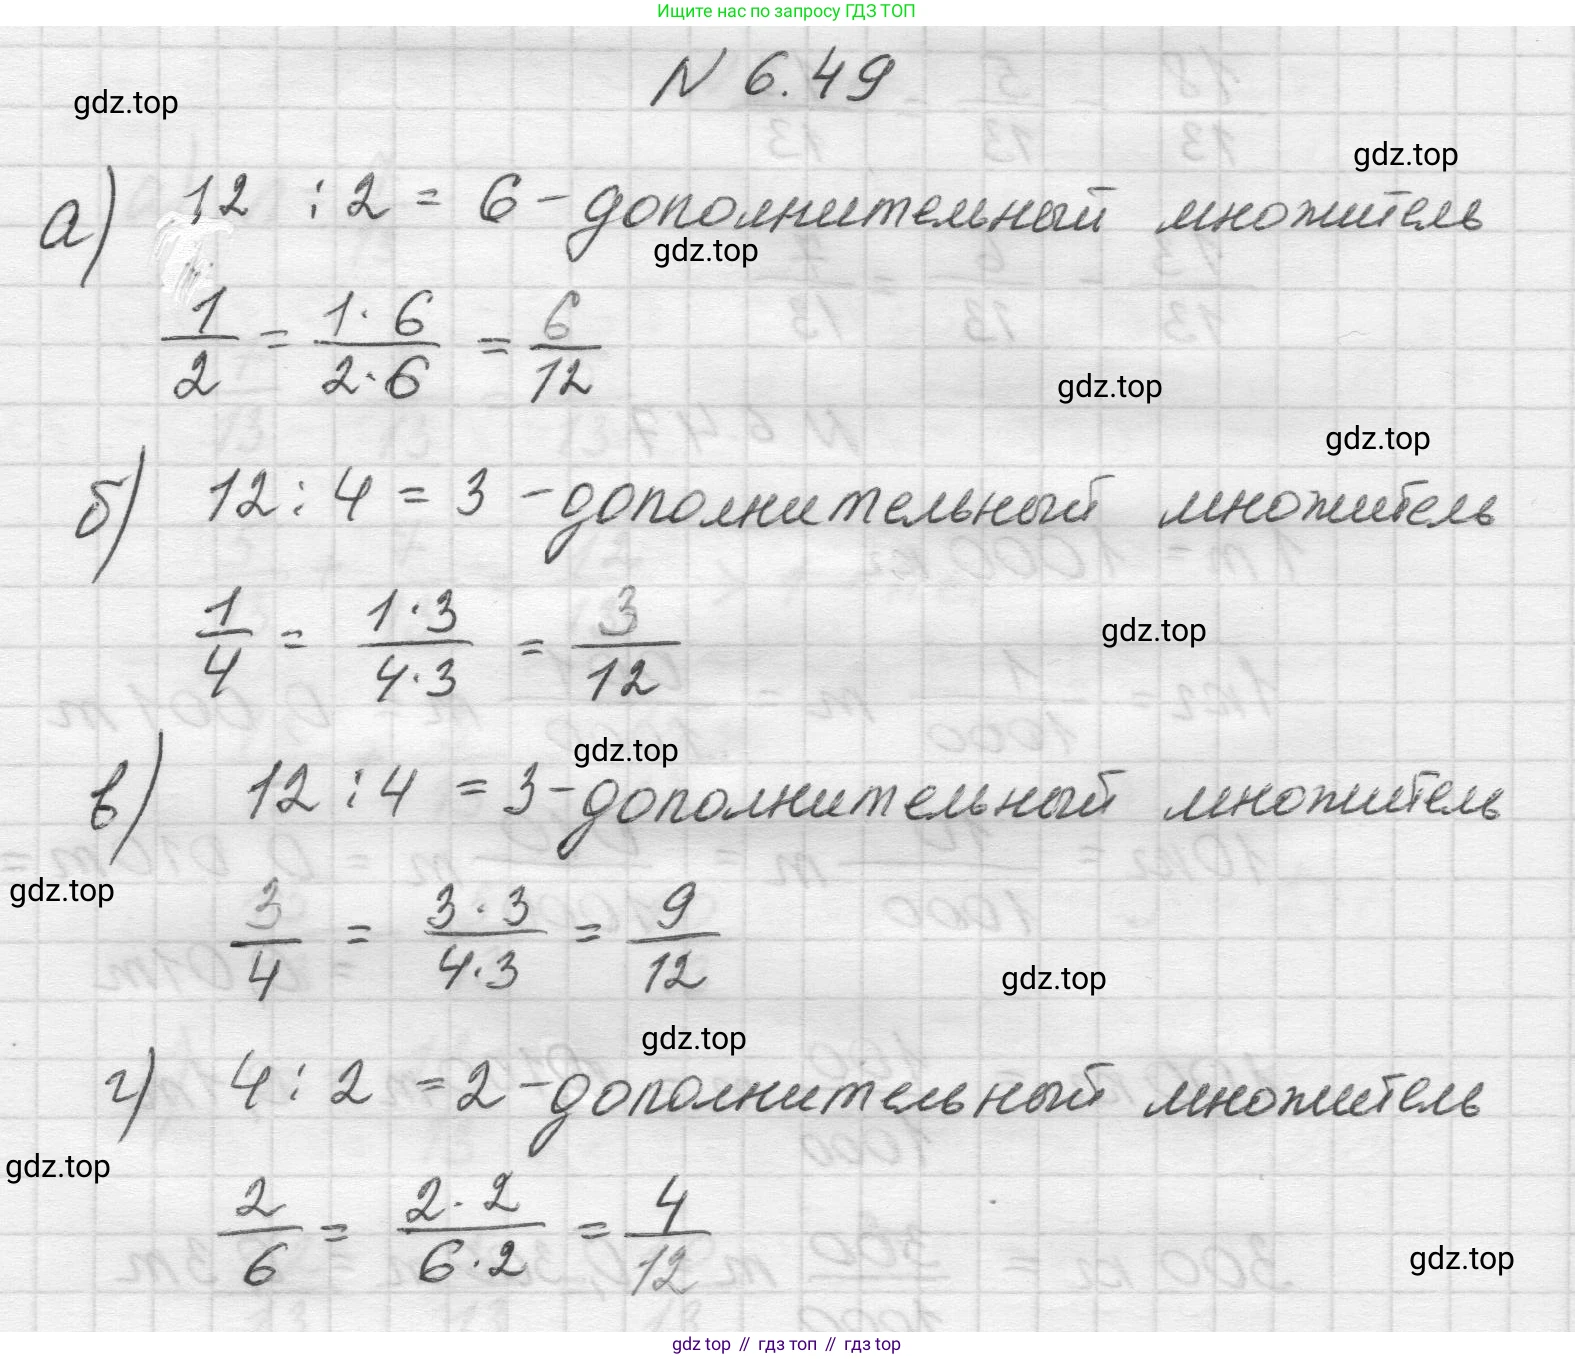 Ищите нас по запросу ГДЗ ТОП
N 6.49
gdz.top
gdz.top
а) 12 : 2 = 6 - дополнительный множитель
gdz.top
1/2 = 1·6/2·6 = 6/12
gdz.top
gdz.top
б) 12 : 4 = 3 - дополнительный множитель
1/4 = 1·3/4·3 = 3/12
gdz.top
gdz.top
в) 12 : 4 = 3 - дополнительный множитель
gdz.top
3/4 = 3·3/4·3 = 9/12
gdz.top
gdz.top
г) 4 : 2 = 2 - дополнительный множитель
gdz.top
2/6 = 2·2/6·2 = 4/12
gdz.top
gdz top // гдз топ // gdz top